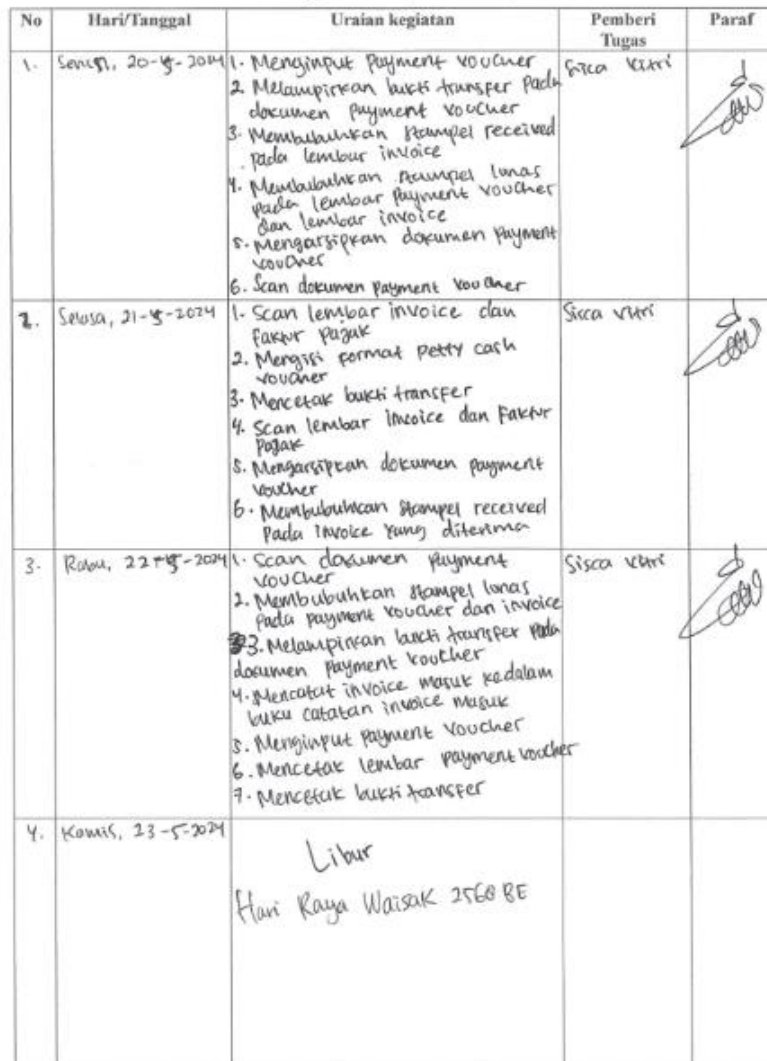 No Hari/Tanggal Uraian kegiatan Pemberi Tugas Paraf
1. Senin, 20-5-2024
1. Menginput Payment voucher
2. Melampirkan bukti transfer Pada
dokumen payment voucher
3. Membubuhkan stampel received
pada lembar invoice
4. Membubuhkan stampel lunas
pada lembar payment voucher
dan lembar invoice
5. Mengarsipkan dokumen payment
voucher
6. Scan dokumen payment voucher
Sisca Vitri
2. Selasa, 21-5-2024
1. Scan lembar invoice dan
faktur pajak
2. Mengisi format Petty cash
voucher
3. Mencetak bukti transfer
4. Scan lembar invoice dan Faktur
Pajak
5. Mengarsipkan dokumen payment
voucher
6. Membubuhkan stampel received
Pada invoice yang diterima
Sisca Vitri
3. Rabu, 22-5-2024
1. Scan dokumen payment
voucher
2. Membubuhkan stampel lunas
pada payment voucher dan invoice
3. Melampirkan bukti transfer pada
dokumen payment voucher
4. Mencatat invoice masuk kedalam
buku catatan invoice masuk
5. Menginput payment voucher
6. Mencetak lembar payment voucher
7. Mencetak bukti transfer
Sisca Vitri
4. Kamis, 23-5-2024
Libur
Hari Raya Waisak 2568 BE